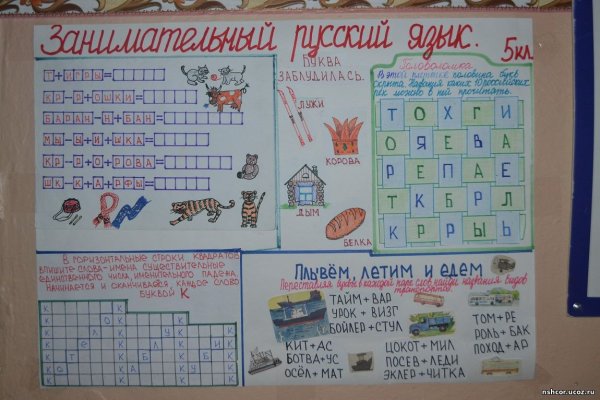 Занимательный русский язык.
5 кл.
Т+ИГРЫ=
КР-Р+ОШКИ=
БАРАН-Н+БАН=
МЫ-Ы+ШКА=
КР-Р+ОРОВА=
ШК-К+АРФЫ=
БУКВА
ЗАБЛУДИЛАСЬ.
ЛУЖИ
КОРОВА
ДЫМ
БЕЛКА
Головоломка.
В этой плетнке половина букв
скрыта. Названия каких
рек можно в ней прочитать.
Т О Х Г И
О Я Е В А
Р Е П А Е
Т К Б Р Л
К Р Р Ы Ь
В ГОРИЗОНТАЛЬНЫЕ СТРОКИ КВАДРАТОВ
ВПИШИТЕ СЛОВА-ИМЕНА СУЩЕСТВИТЕЛЬНЫЕ
ЕДИНСТВЕННОГО ЧИСЛА, ИМЕНИТЕЛЬНОГО ПАДЕЖА,
НАЧИНАЕТСЯ И СКАНЧИВАЕТСЯ КАЖДОЕ СЛОВО
БУКВОЙ К
Плывём, летим и едем
Переставляя буквы в каждой паре слов найди названия видов
транспортов.
ТАЙМ+ВАР
УРОК+ВИЗГ
БОЙЛЕР+СТУЛ
КИТ+АС
БОТВА+УС
ОСЁЛ+МАТ
ЦОКОТ+МИЛ
ПОСЕВ+ЛЕДИ
ЭКЛЕР+ЧИТКА
ТОМ+РЕ
РОЛЬ+БАК
ПОХОД+АР
nshcor.ucoz.ru